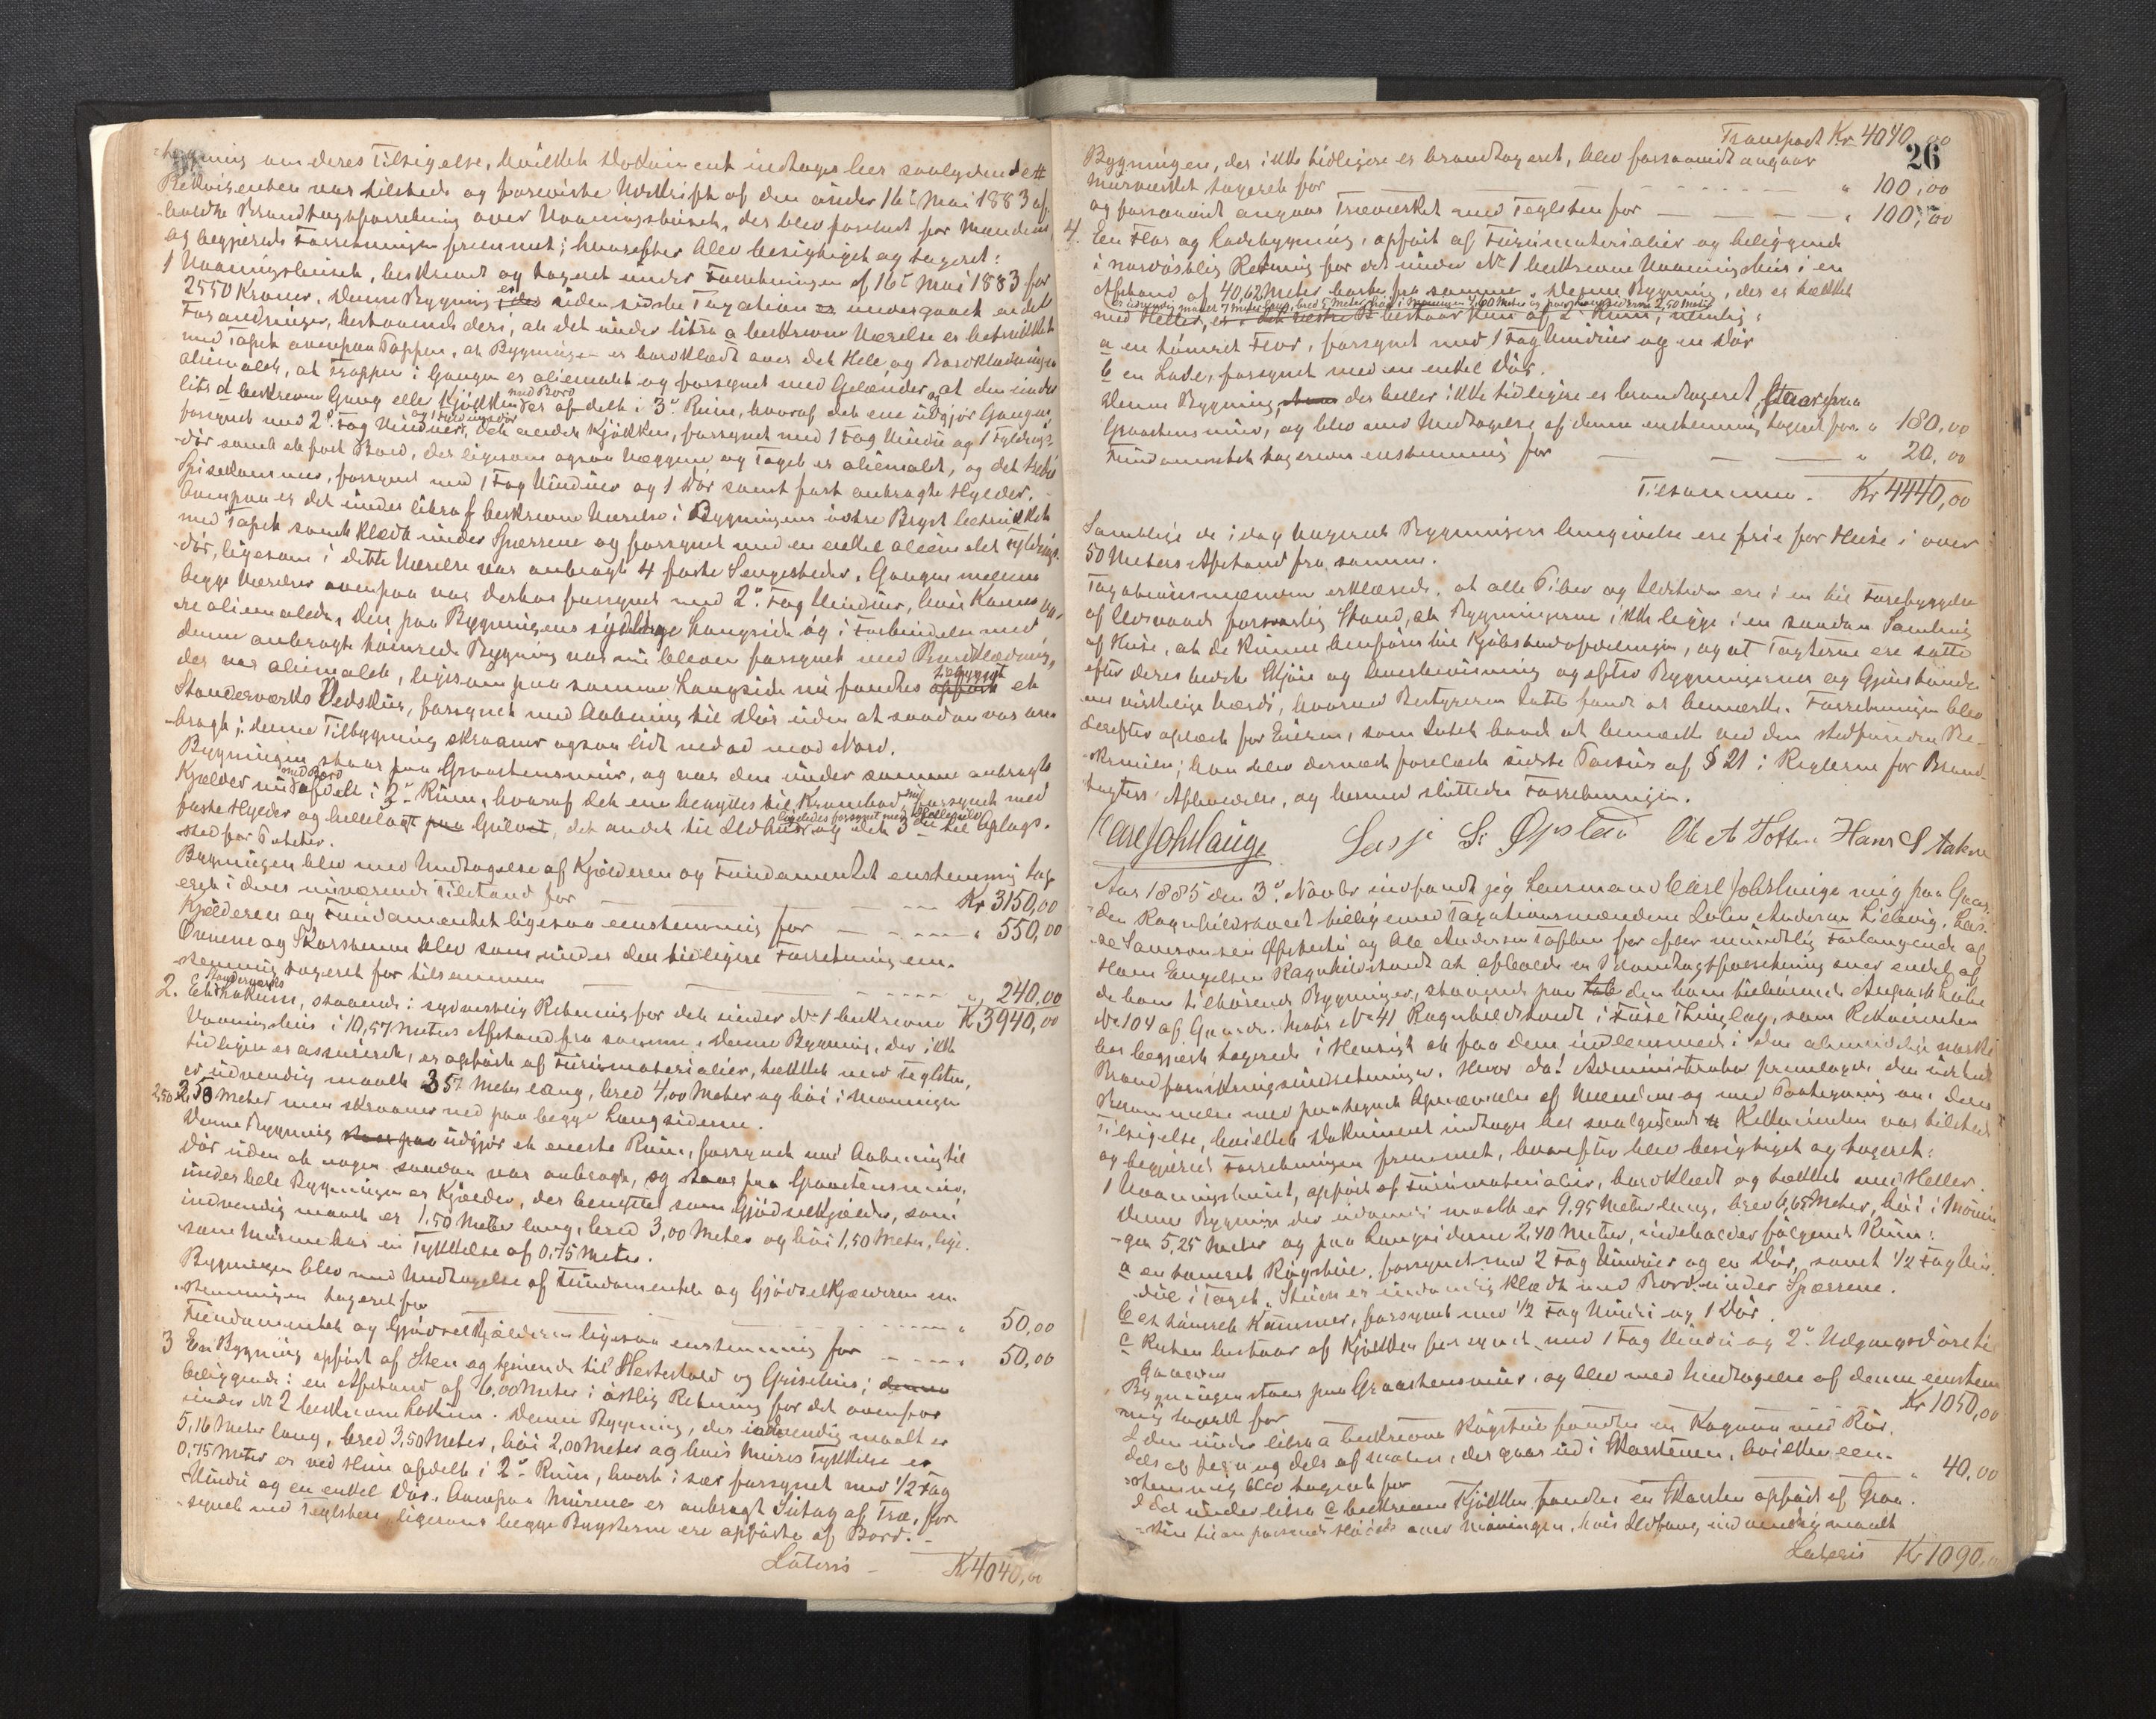 tegning om deres Tilsigelse, hvilket Dokument indtages her saalydende #
Rekvirenten var tilstede og foreviste Udskrift af den under 16de Mai 1883 af-
holdte Brandtagtsforretning over Vaaningshuset, der blev forelæst for Mændene,
og begjerede Forretningen fremmet; hvorefter blev besigtiget og taxeret:
1 Vaaningshuset, beskrevet og taxeret under Forretningen af 16de Mai 1883 for
2550 Kroner. Denne Bygning er siden sidste Taxation undergaaet endel
Forandringer, bestaaende deri, at det under litra a beskrevne Værelse er betrukket
med Tapet ovenpaa Pappen, at Bygningen er bordklædt over det Hele og Bordklædningen
oliemalet, at Trappen i Gangen er oliemalet og forsynet med Gelænder, og at den under
litr d beskrevne Gang eller Kjøkken er med Bord afdelt i 3de Rum, hvoraf det ene udgjør Gangen,
forsynet med 2de Fag Vinduer og 1 Udgangsdør, det andet Kjøkken, forsynet med 1 Fag Vindue og 1 Fyldings-
dør samt et fast Bord, der ligesom ogsaa Væggene og Taget er oliemalet, og det tredie
Spisekammer, forsynet med 1 Fag Vinduer og 1 Dør samt fast anbragte Hylder.
Ovenpaa er det under litra f beskrevne Værelse i Bygningens østre Bryst betrukket
med Tapet samt klædt under Sperrene og forsynet med en enkel oliemalet Fyldings-
dør, ligesom i dette Værelse var anbragt 4 faste Sengesteder. Gangen mellem
begge Værelser ovenpaa var derhos forsynet med 2de Fag Vinduer, hvis Karme va-
re oliemalede. Den paa Bygningens sydlige Langside og i Forbindelse med
denne anbragte tømrede Bygning var nu bleven forsynet med Bordklædning,
der var oliemalet, ligesom paa samme Langside nu fandtes tilbygget et
Standerværks Vedskur, forsynet med Aabning til Dør uden at saadan var an-
bragt; denne Tilbygning skraaner ogsaa lidt nedad mod Nord.
Bygningen staar paa Graastensmur, og var den under samme anbragte
Kjelder nu med Bord afdelt i 3de Rum, hvoraf det ene benyttes til Krambod, nu forsynet med
faste Hylder og hellelagt Gulv, det andet til Ildhus ligeledes forsynet med Hellegulv og det 3die til Oplags-
sted for Poteter.
Bygningen blev med Undtagelse af Kjælderen og Fundamentet enstemmig tax-
eret i dens nuværende Tilstand for — — — Kr 3150,00
Kjælderen og Fundamentet ligesaa enstemmig for — — — " 550,00
Ovnene og Skorstenen blev som under den tidligere Forretning en-
stemmig taxeret for tilsammen — — — " 240,00
Kr 3940,00
2. Et Standerværks Lokum, staaende i sydvestlig Retning for det under No 1 beskrevne
Vaaningshus i 10,57 Meters Afstand fra samme. Denne Bygning, der ikke
tidligere er assureret, er opført af Furumaterialier, tækket med Teglsten,
er udvendig maalt 3 57 Meter lang, bred 4,00 Meter og høi i Mønningen
2,50 Meter men skraaner ned paa begge Langsiderne.
Denne Bygning udgjør et eneste Rum, forsynet med Aabning til
Dør uden at nogen saadan var anbragt, og staar paa Graastensmur.
Under hele Bygningen er Kjælder, der benyttes som Gjødselkjælder, som
indvendig maalt er 1,50 Meter lang, bred 3,00 Meter og høi 1,50 Meter, lige-
som Murene har en Tykkelse af 0,75 Meter.
Bygningen blev med Undtagelse af Fundamentet og Gjødselkjælderen en-
stemmigen taxeret for — — — " 50,00
Fundamentet og Gjødselkjælderen ligesaa enstemmig for — — — " 50,00
3 En Bygning opført af Sten og tjenende til Hestestald og Grisehus;
beliggende i en Afstand af 6,00 Meter i østlig Retning for det ovenfor
under No 2 beskrevne Lokum. Denne Bygning, der indvendig maalt er
5,16 Meter lang, bred 3,50 Meter, høi 2,00 Meter og hvis Mures Tykkelse er
0,75 Meter er ved Mur afdelt i 2de Rum, hvert i sær forsynet med 1/2 Fag
Vindu og en enkel Dør. Ovenpaa Murene er anbragt Sutag af Træ, for-
synet med Teglsten, ligesom begge Brysterne ere opførte af Bord.
Lateris — Kr 4040,00
26
Transport Kr 4040,00
Bygningen, der ikke tidligere er brandtaxeret, blev forsaavidt angaar
Murværket taxeret for — — — " 100,00
og forsaavidt angaar Træværket med Teglsten for — — — " 100,00
4. En Flor og Ladebygning, opført af Furumaterialier og beliggende
i nordøstlig Retning for det under No 1 beskrevne Vaaningshus i en
Afstand af 40,62 Meter borte fra samme. Denne Bygning, der er tækket
er udvendig maalt 7 Meter lang, bred 5 Meter, høi i Mønningen 4,60 Meter og paa Langsiderne 2,50 Meter
med Heller, bestaar kun af 2 Rum, nemlig:
a en tømret Flor, forsynet med 1 Fag Vinduer og en Dør
b en Lade, forsynet med en enkel Dør.
Denne Bygning, der heller ikke tidligere er brandtaxeret, staar paa
Graastensmur, og blev med Undtagelse af denne enstemmig taxeret for " 180,00
Fundamentet taxeres enstemmig for — — — " 20,00
Tilsammen. Kr 4440,00
Samtlige de idag taxerede Bygningers Omgivelse ere frie for Huse i over
50 Meters Afstand fra samme.
Taxationsmændene erklærede, at alle Piber og Ildsteder ere i en til Forebyggelse
af Ildsvaade forsvarlig Stand, at Bygningerne ikke ligge i en saadan Samling
af Huse, at de kunne henføres til Kjøbstadafdelingen, og at Taxterne ere satte
efter deres bedste Skjøn og Overbevisning og efter Bygningernes og Gjenstande-
nes virkelige Værdi, hvorved Bestyreren Intet fandt at bemærke. Forretningen blev
derefter oplæst for Eieren, som Intet havde at bemærke ved den stedfundne Be-
skrivelse; han blev dernæst forelæst sidste Passus af § 21 i Reglerne for Brand-
taxters Afholdelse, og hermed sluttedes Forretningen.
Carl Joh Lauge Lasse S: Øpstad Ole A Toften Hans S Aakre
Aar 1885 den 3de Novbr indfandt jeg Lensmand Carl Joh Lunge mig paa Gaar-
den Ragnhildsvedt tilligemed Taxationsmændene Anderson Lillevig, Las-
se Samsonsen Øpstad og Ole Andersen Toften for efter mundtlig Forlangende af
Hans Engelsen Ragnhildstvedt at afholde en Brandtagtsforretning over endel af
de ham tilhørende Bygninger, staaende paa den ham tilhørende Anpart Løbe
No 104 af Gaarden Matr No 41 Ragnhildstvedt i Fuse Thinglag, som Rekvirenten
har begjært taxerede i Hensigt at faa dem indlemmede i den almindelige norske
Brandforsikringsindretning. Hvor da! Administrator fremlagde den udstedte
Berammelse med paategnet Opnævnelse af Mændene og med Paategning om deres
Tilsigelse, hvilket Dokument indtages her saalydende # Rekvirenten var tilstede
og begjerede Forretningen fremmet, hvorefter blev besigtiget og taxeret:
1 Vaaningshuset, opført af Furumaterialier, bordklædt og tækket med Heller.
Denne Bygning der udvendig maalt er 9,95 Meter lang, bred 6,65 Meter, høi i Mønnin-
gen 5,25 Meter og paa Langsiderne 2,40 Meter, indeholder følgende Rum:
a en tømret Røgstue, forsynet med 2 Fag Vinduer og en Dør, samt 1/2 Fag Vin-
due i Taget. Stuen er indvendig klædt med Bord under Sperrene.
b et tømret Kammer, forsynet med 1/2 Fag Vindu og 1 Dør.
c Resten bestaar af Kjøkken forsynet med 1 Fag Vindu og 2de Udgangsdøre til
Gaarden
Bygningen staar paa Graastensmur, og blev med Undtagelse af denne enstem-
mig taxeret for Kr 1050,00
I den under litra a beskrevne Røgstue fandtes en Kogeovn med Rør,
dels af Jern og dels af Malm, der gaar ud i Skorstenen, hvilken een-
stemmig blev taxeret for " 40,00
I det under litra c beskrevne Kjøkken fandtes en Skorsten opført af Graa-
sten til en passende Høide over Mønningen, hvis Ildsteds indvendig maalt
Lateris Kr 1090,00